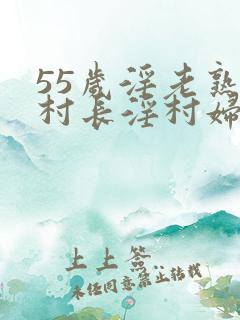 55歳淫老熟
村长淫村婦
上上签
未经同意禁止转载